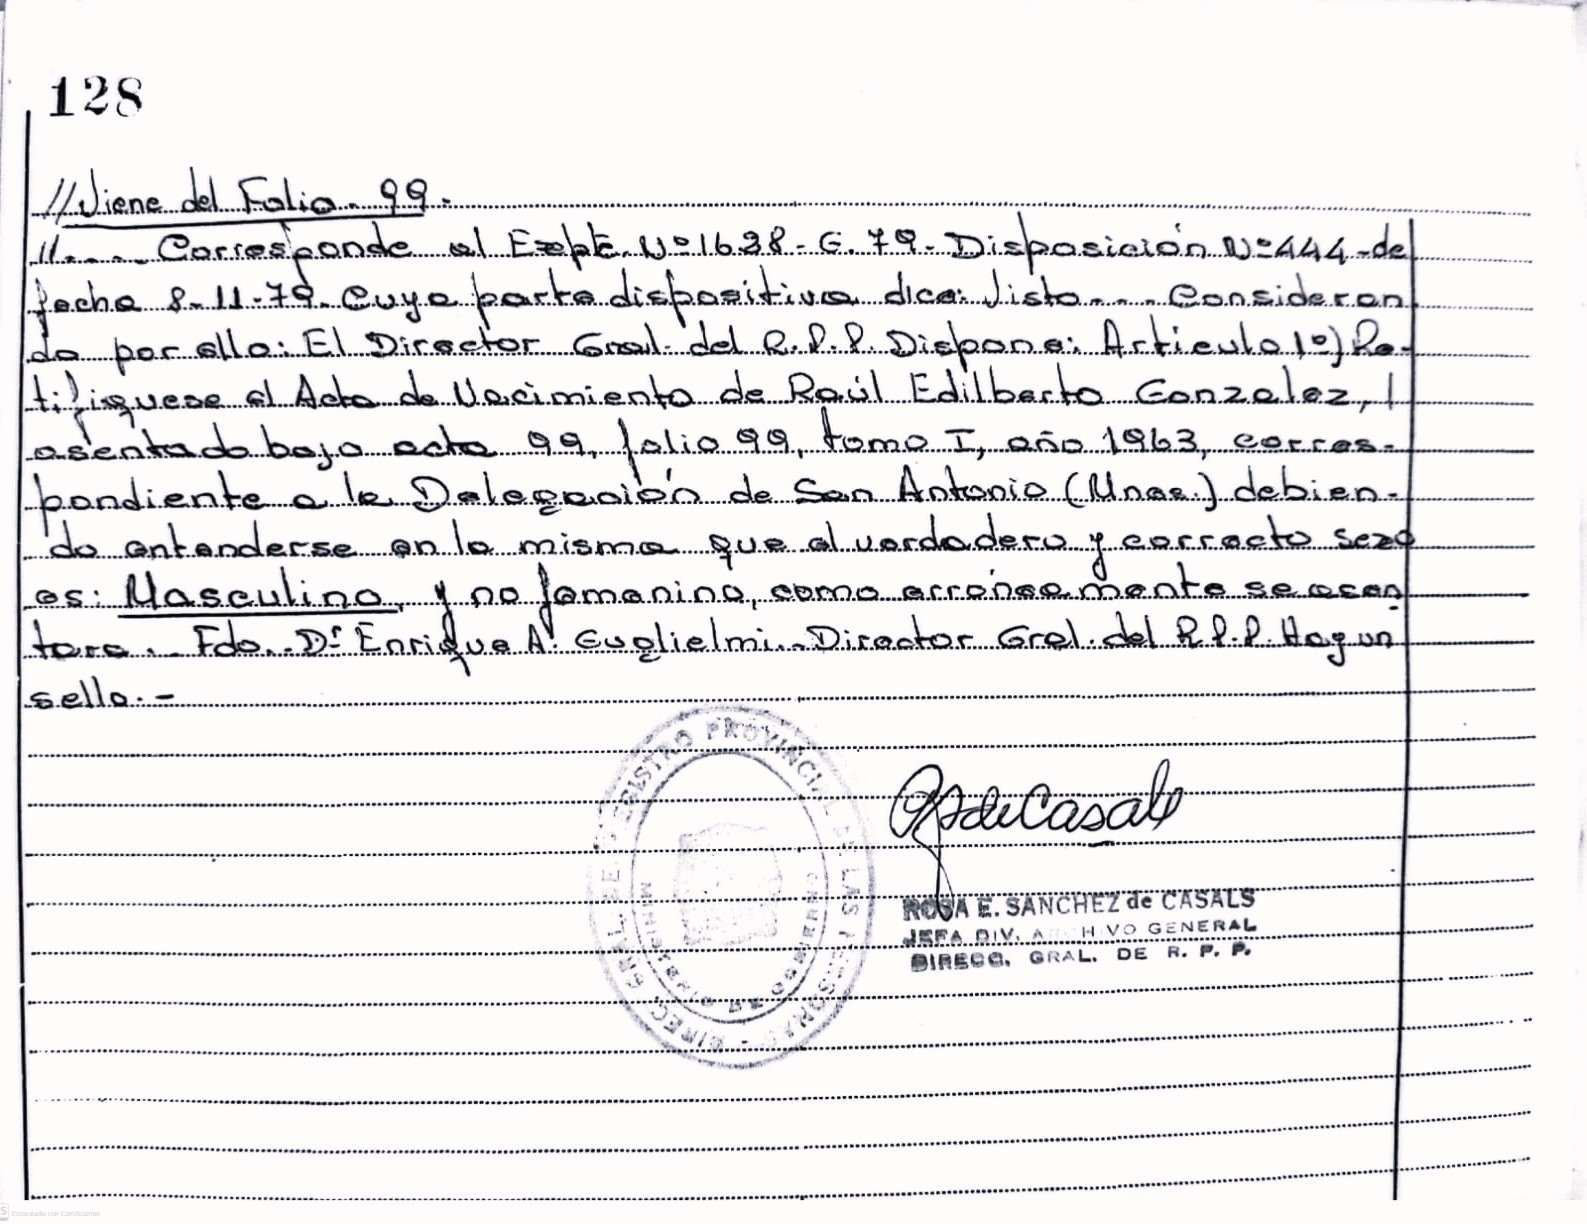 128
//Viene del Folio.. 99.
//.... Corresponde al Expte. Nº 1638-G.79- Disposición Nº 444-de
fecha 8-11-79. Cuya parte dispositiva dice: Visto... Consideran
do por ello: El Director Gral. del R.P.P. Dispone: Artículo 1º) Rec-
tifíquese el Acta de Nacimiento de Raúl Edilberto Gonzalez, /
asentado bajo acta 99, folio 99, tomo I, año 1963, corres-
pondiente a la Delegación de San Antonio (Mnes.) debien-
do entenderse en la misma que el verdadero y correcto sexo
es: Masculino, y no femenino, como erróneamente se asen
tara.. Fdo.. Dr Enrique A. Guglielmi.. Director Gral. del R.P.P. Hay un
sello.-
REGISTRO PROVINCIAL DE LAS PERSONAS - DIREC. GRAL. DEL
MINISTERIO DE GOBIERNO
R S de Casals
ROSA E. SANCHEZ de CASALS
JEFA DIV. ARCHIVO GENERAL
DIRECC. GRAL. DE R. P. P.
Escaneado con CamScanner